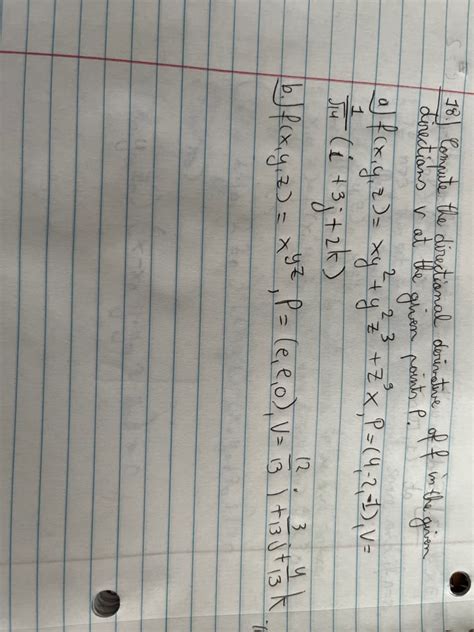 18) Compute the directional derivative of f in the given
directions v at the given points P.
a) f(x,y,z) = xy² + y²z³ + z³x, P = (4,-2,-1), v =
1/√14 (i + 3j + 2k)
b) f(x,y,z) = x^yz, P = (e,e,0), v = 12/13 i + 3/13 j + 4/13 k